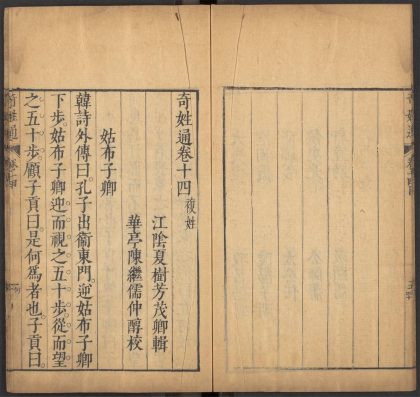 奇姓通卷十四 複姓
江陰夏樹芳茂卿輯
華亭陳繼儒仲醇校
姑布子卿
韓詩外傳曰孔子出衞東門逆姑布子卿
下步姑布子卿迎而視之五十步從而望
之五十步顧子貢曰是何爲者也子貢曰
奇姓通
卷十四